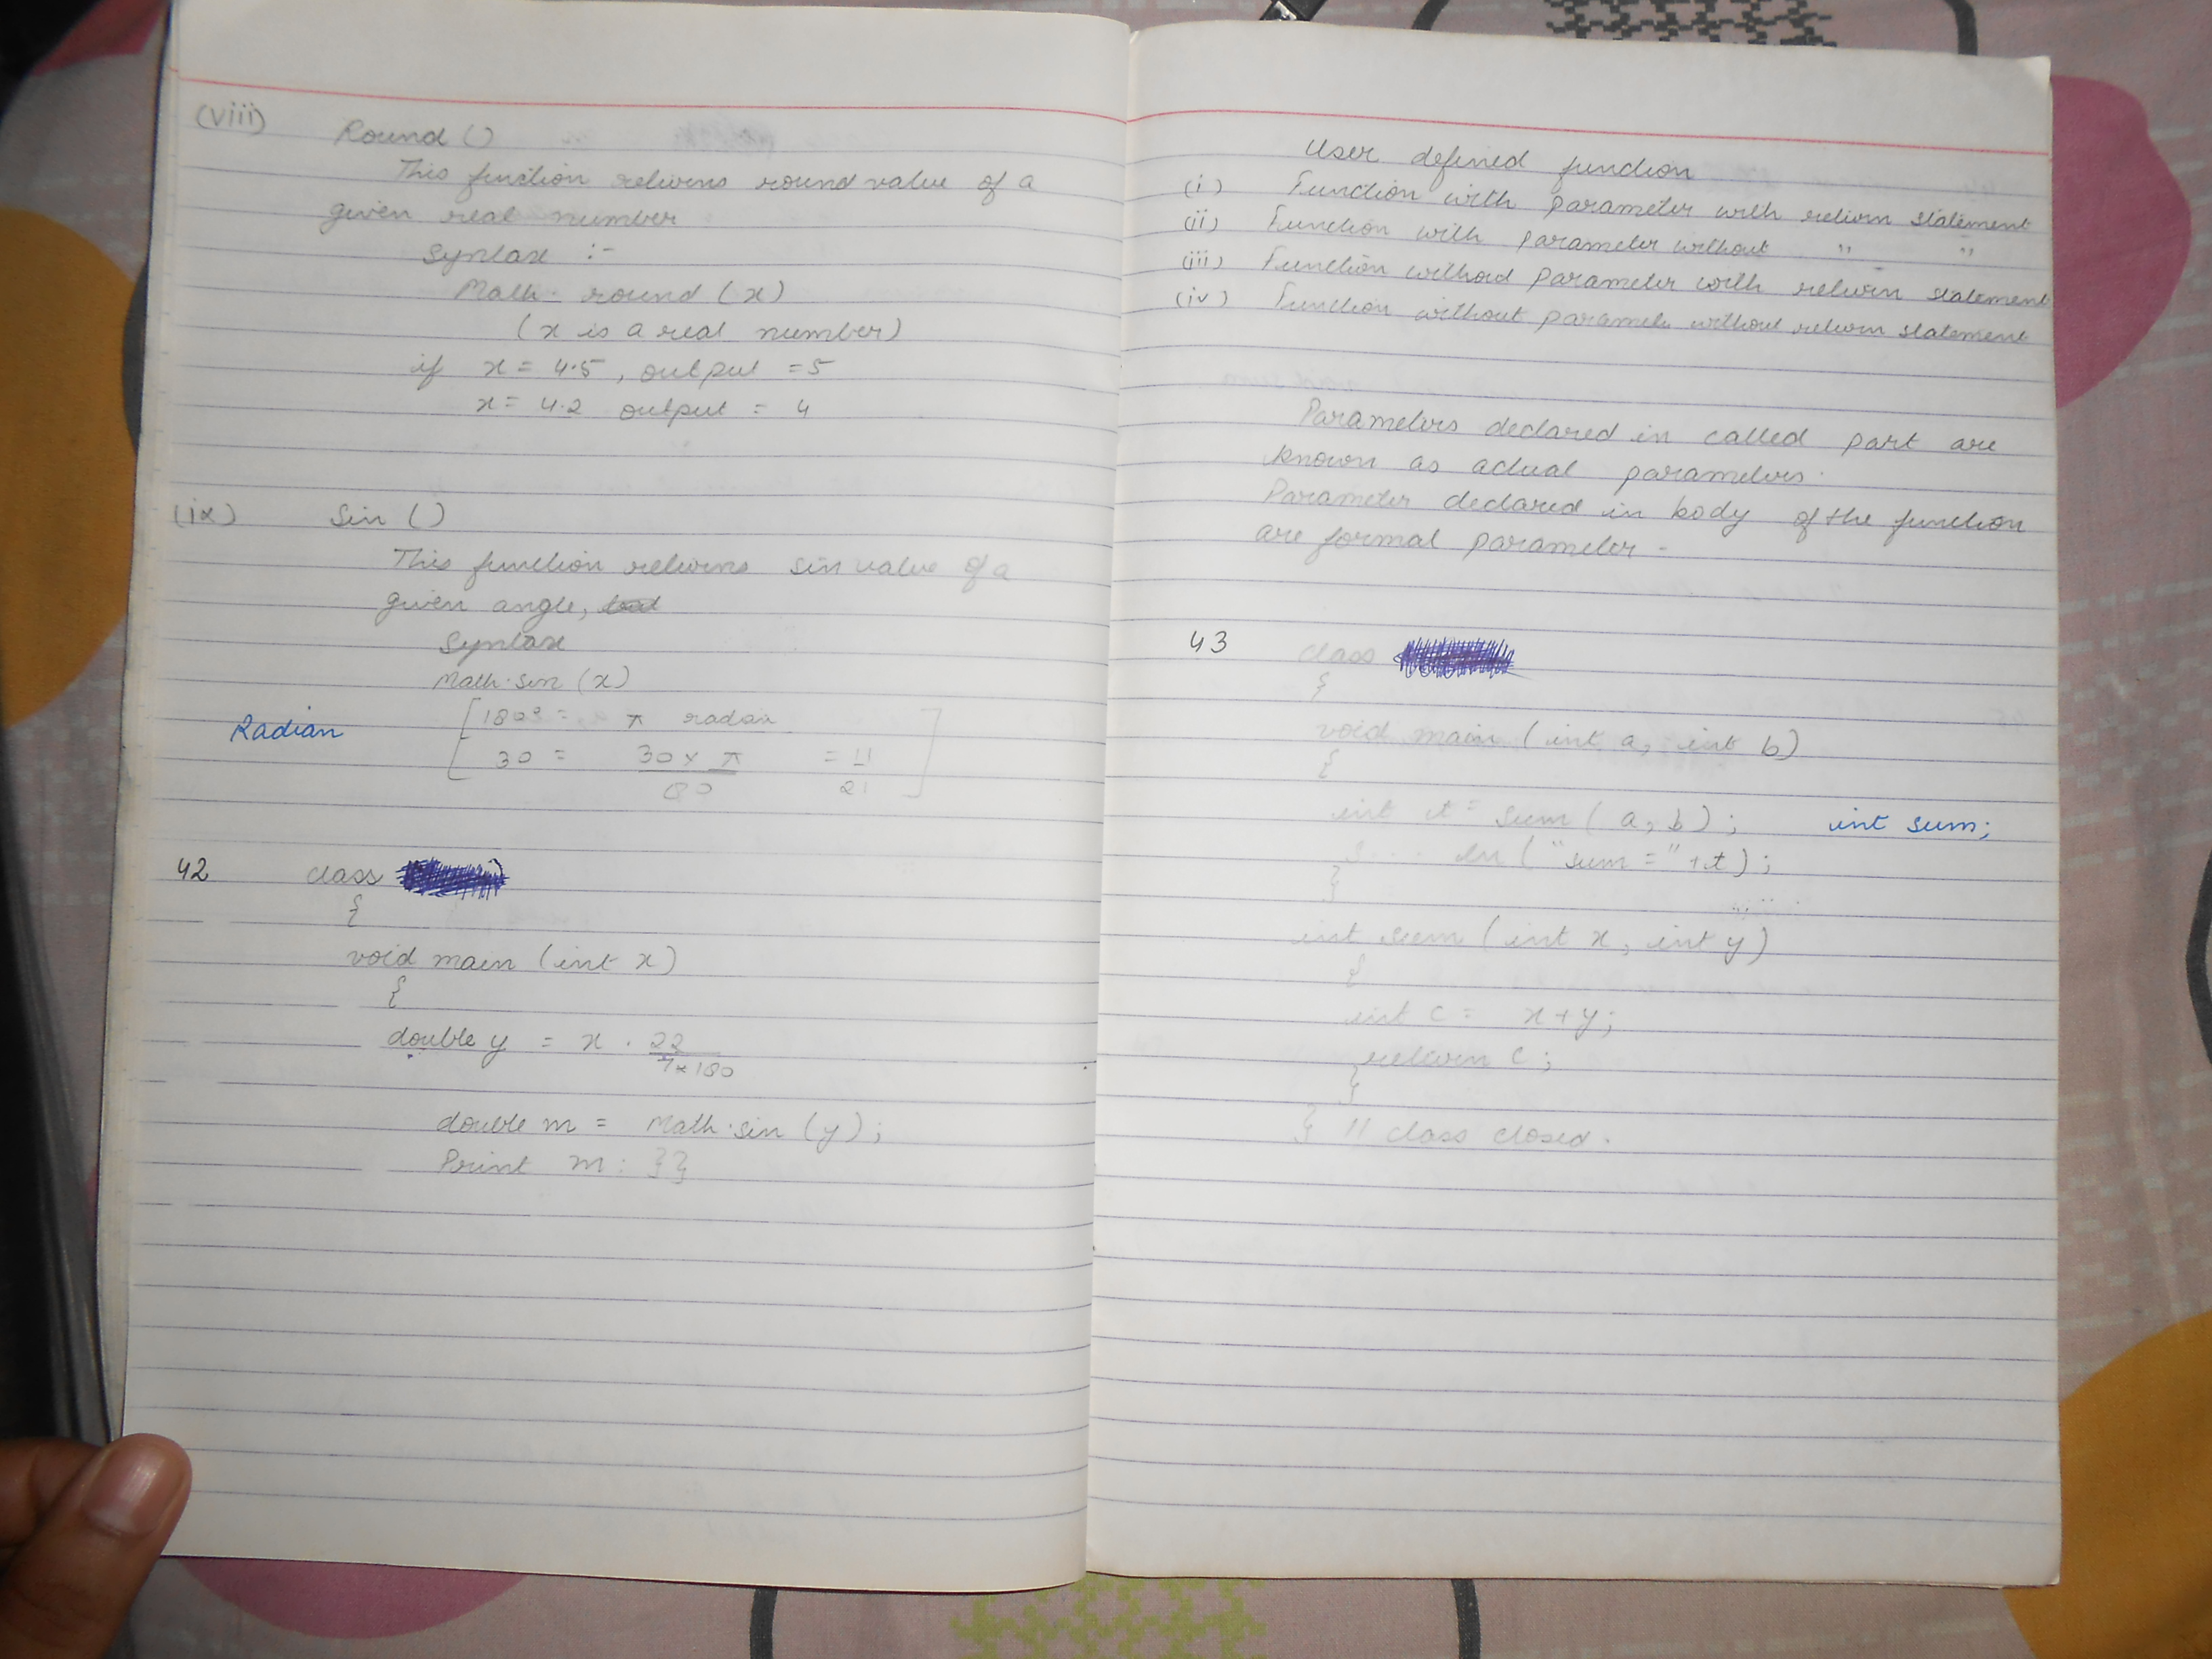 (viii) Round ()
This function returns round value of a
given real number
Syntax :-
Math. round (x)
(x is a real number)
if x = 4.5, output = 5
x = 4.2 output = 4
(ix) Sin ()
This function returns sin value of a
given angle,
Syntax
Math.sin (x)
Radian
180° = π radian
30 = 30 x π
42 class
{
void main (int x)
{
double y = x . 22
7x180
double m = Math.sin (y);
Print m: }}
User defined function
(i) Function with parameter with return statement
(ii) Function with parameter without " "
(iii) Function without parameter with return statement
(iv) Function without paramete without return statement
Parameters declared in called part are
known as actual parameters.
Parameter declared in body of the function
are formal parameter -
43 class
{
void main (int a, int b)
{
int t = sum (a, b); int sum;
S . . . . ln ("sum =" +t);
}
int sum (int x, int y)
{
int c = x+y;
return c;
}
} // class closed.